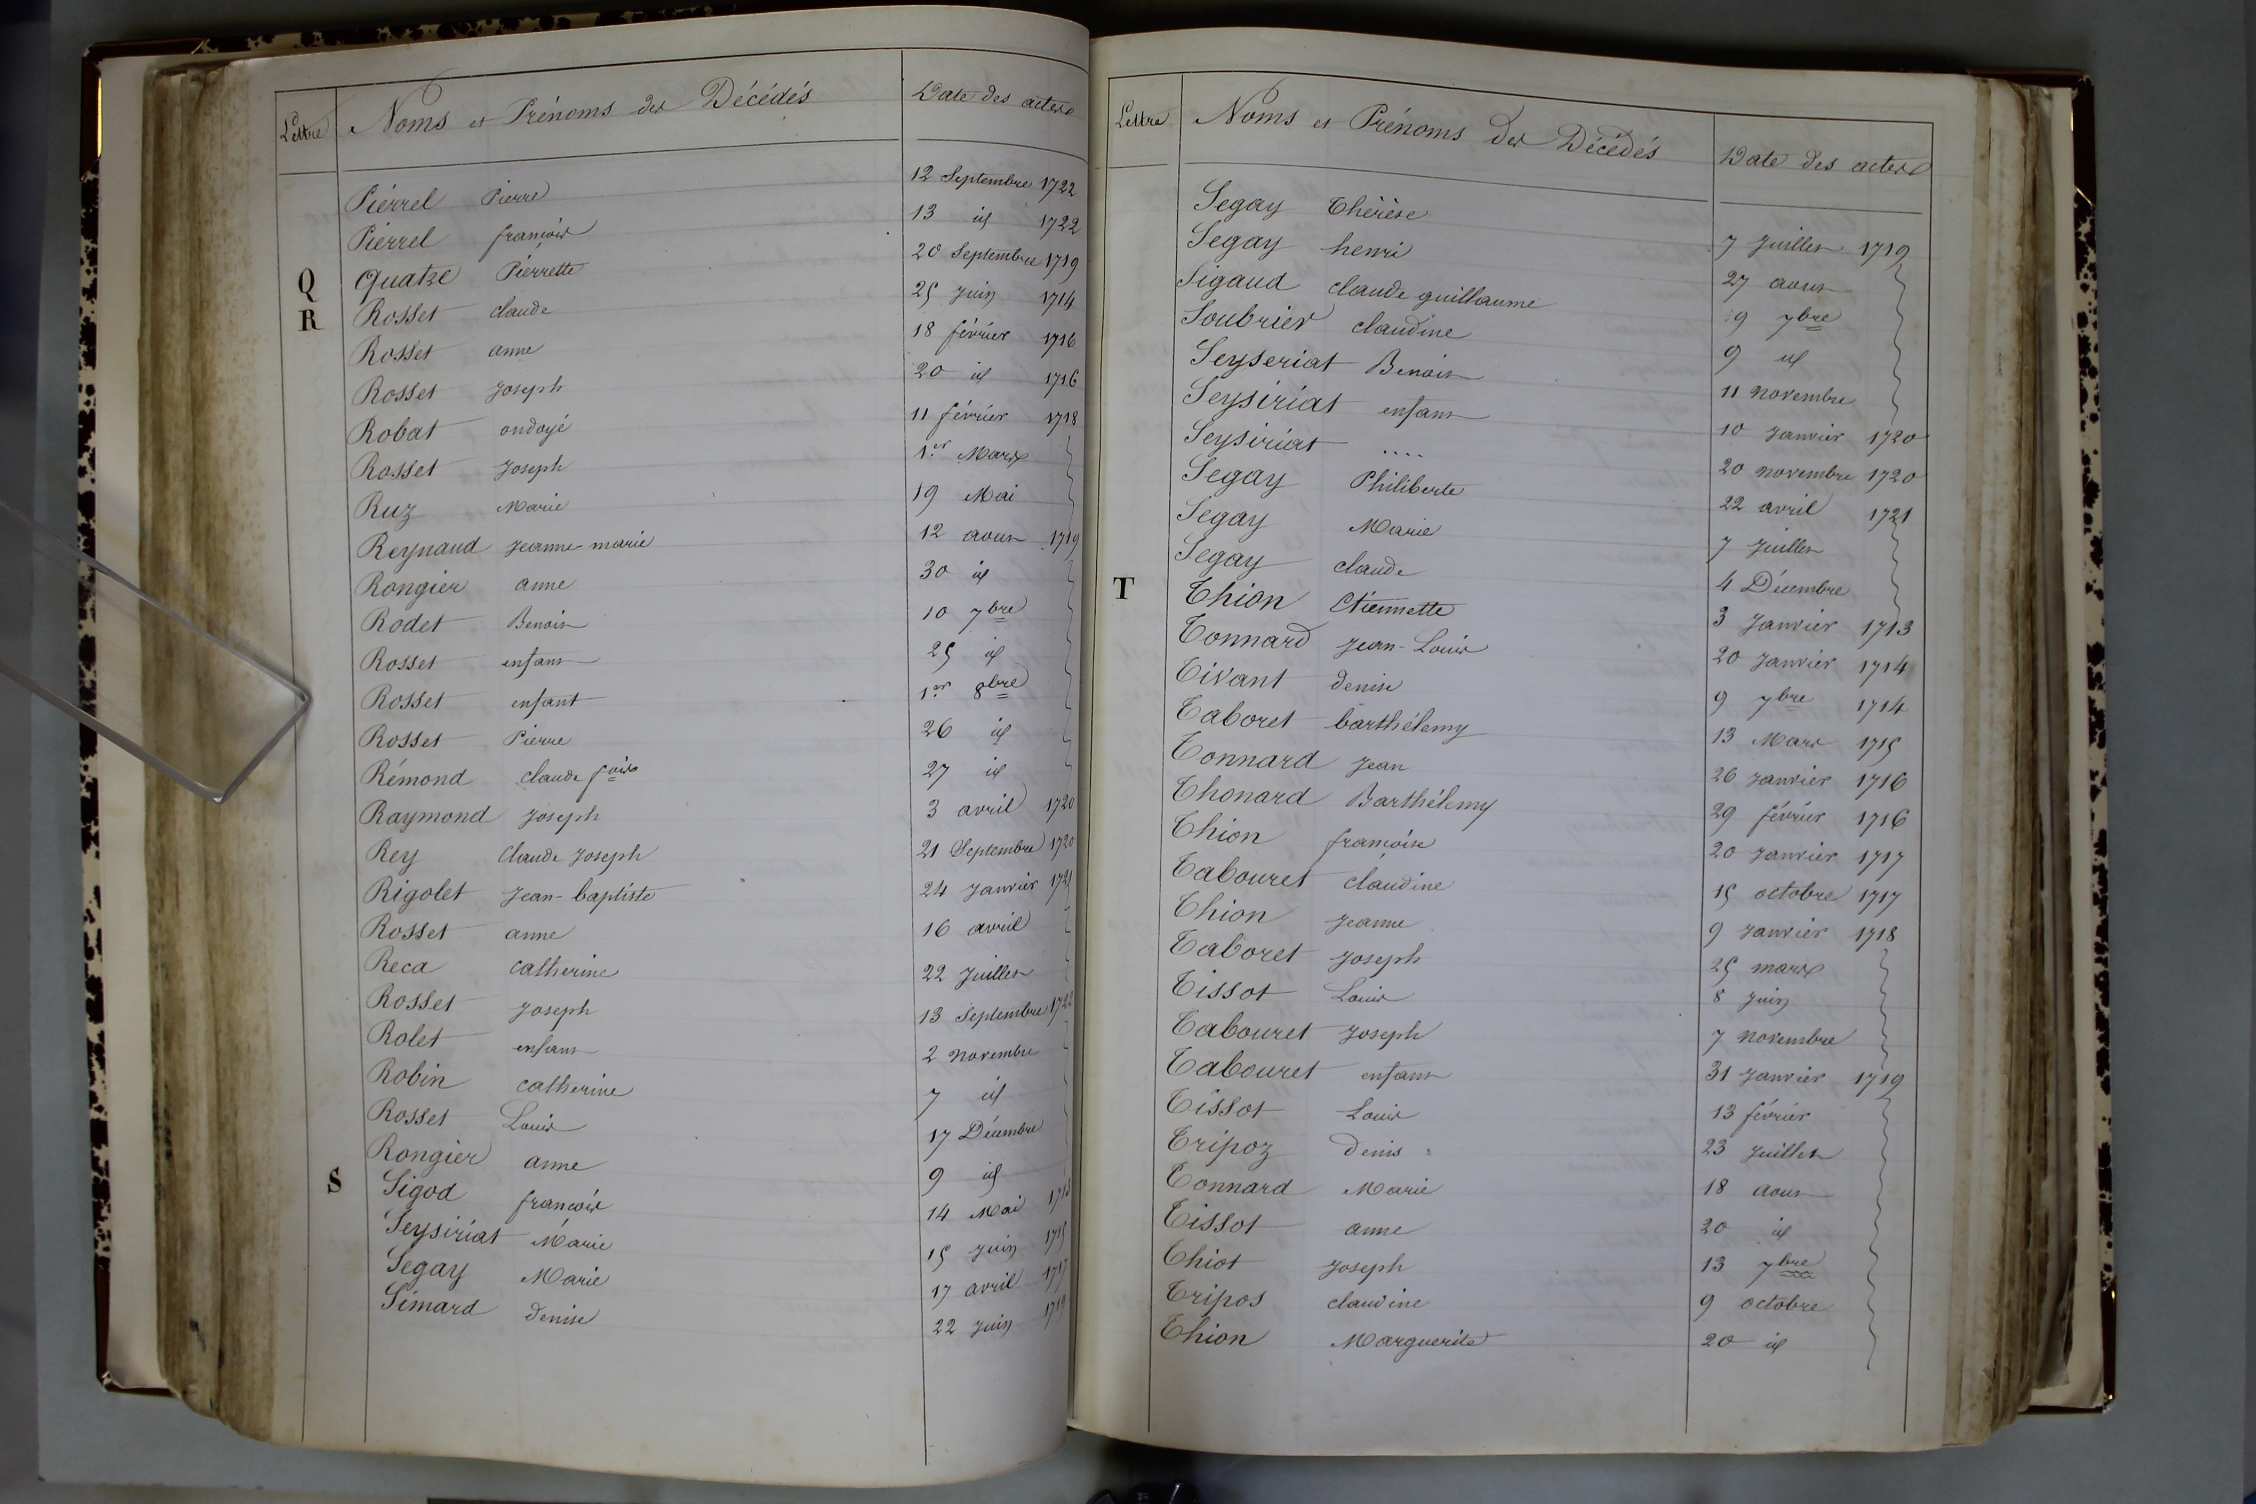 Lettre Noms et Prénoms des Décédés Date des actes
Pierrel Pierre 12 Septembre 1722
Pierrel françois 13 id 1722
Q Quatre Pierrette 20 Septembre 1719
R Rosset claude 25 juin 1714
Rosset anne 18 février 1716
Rosset joseph 20 id 1716
Robat ondoyé 11 février 1718
Rosset joseph 1er Mars
Ruz Marie 19 Mai
Reynaud jeanne-marie 12 aout 1719
Rongier anne 30 id
Rodet Benoit 10 7bre
Rosset enfant 25 id
Rosset enfant 1er 8bre
Rosset Pierre 26 id
Rémond claude fois 27 id
Raymond joseph 3 avril 1720
Rey Claude joseph 21 Septembre 1720
Rigolet jean-baptiste 24 janvier 1721
Rosset anne 16 avril
Reca catherine 22 juillet
Rosset joseph 13 Septembre 1722
Rolet enfant 2 novembre
Robin catherine 7 id
Rosset Louis 17 Décembre
Rongier anne 9 id
S Sigod françois 14 Mai 1713
Seysiriat Marie 15 juin 1715
Segay Marie 17 avril 1717
Simard denise 22 juin 1719
Lettre Noms et Prénoms des Décédés Date des actes
Segay Thérèse 7 juillet 1719
Segay henri 27 aout
Sigaud claude guillaume 9 7bre
Soubrier claudine 9 id
Seyseriat Benoit 11 novembre
Seysiriat enfant 10 janvier 1720
Seysiriat .... 20 novembre 1720
Segay Philiberte 22 avril 1721
Segay Marie 7 juillet
Segay claude 4 Décembre
T Thion Etiennette 3 janvier 1713
Tonnard jean-Louis 20 janvier 1714
Tivant denise 9 7bre 1714
Taboret barthélemy 13 Mars 1715
Tonnard jean 26 janvier 1716
Thonard Barthélemy 29 février 1716
Thion françoise 20 janvier 1717
Tabouret claudine 15 octobre 1717
Thion jeanne 9 janvier 1718
Taboret joseph 25 mars
Tissot Louis 8 juin
Tabouret joseph 7 novembre
Tabouret enfant 31 janvier 1719
Tissot Louis 13 février
Tripoz denis 23 juillet
Tonnard Marie 18 aout
Tissot anne 20 id
Thiot joseph 13 7bre
Tripos claudine 9 octobre
Thion Marguerite 20 id